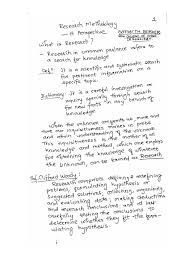 Research Methodology
— A Perspective
What is Research?
- Research in common parlance refers to
a search for knowledge
Def: It is a scientific and systematic search
for pertinent information on a
specific topic.
Dictionary: It is a careful investigation or
inquiry specially through search
for new facts in any branch of
knowledge
When the unknown confronts us, more and
more our inquisitiveness makes us probe
and attain understanding of the unknown.
This inquisitiveness is the mother of all
knowledge and method, which one employs
for obtaining the knowledge of whatever
the unknown, can be termed as Research
Def (Clifford Woody):
Research comprises defining & redefining
problems, formulating hypothesis or
suggested solutions; collecting, organising
and evaluating data; making deductions
and research conclusions; and at last
carefully testing the conclusions to
determine whether they fit the formu-
lating hypothesis.